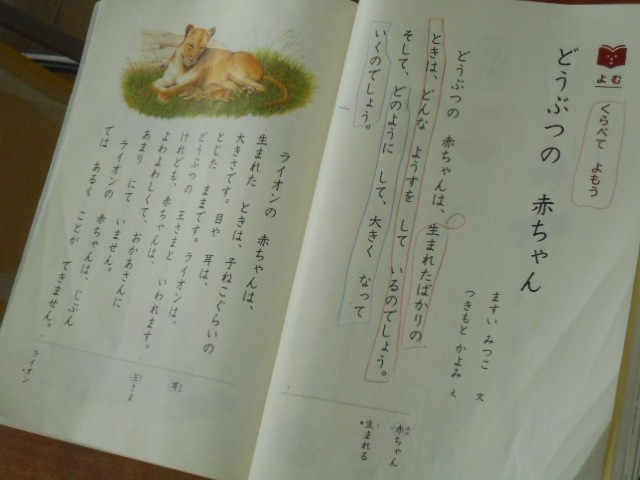 よむ
くらべて よもう
どうぶつの 赤ちゃん
ますい みつこ 文
つきもと かよみ え
どうぶつの 赤ちゃんは、生まれたばかりの
ときは、どんな ようすを して いるのでしょう。
そして、どのように して、大きく なって
いくのでしょう。
赤ちゃん
生まれる
ライオンの 赤ちゃんは、
生まれた ときは、子ねこぐらいの
大きさです。目や 耳は、
とじた ままです。ライオンは、
どうぶつの 王さまと いわれます。
けれども、赤ちゃんは、
よわよわしくて、おかあさんに
あまり にて いません。
ライオンの 赤ちゃんは、じぶん
では あるく ことが できません。
耳
王さま
ライオン